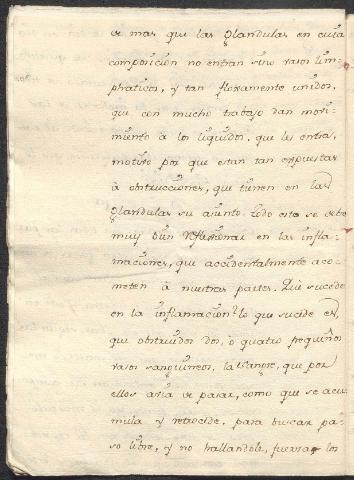 se mas que las glandulas en cuia
composicion no entran sino vasos lim-
phaticos, y tan floxamente unidos,
que con mucho trabajo dan movi-
miento à los liquidos, que les entra,
motivo por que estan tan expuestas
à obstrucciones, que tienen en las
glandulas su asunto. Todo esto se debe
muy bien reflexionar en las infla-
maciones, que accidentalmente aco-
meten à nuestras partes. Que sucede
en la inflammacion? lo que sucede es,
que obstruidos dos, ò quatro pequeños
vasos sanguineos, la Sangre, que por
ellos avia de pasar, como que se acu-
mula y retrocede, para buscar pa-
so libre, y no hallandole, fuerza los